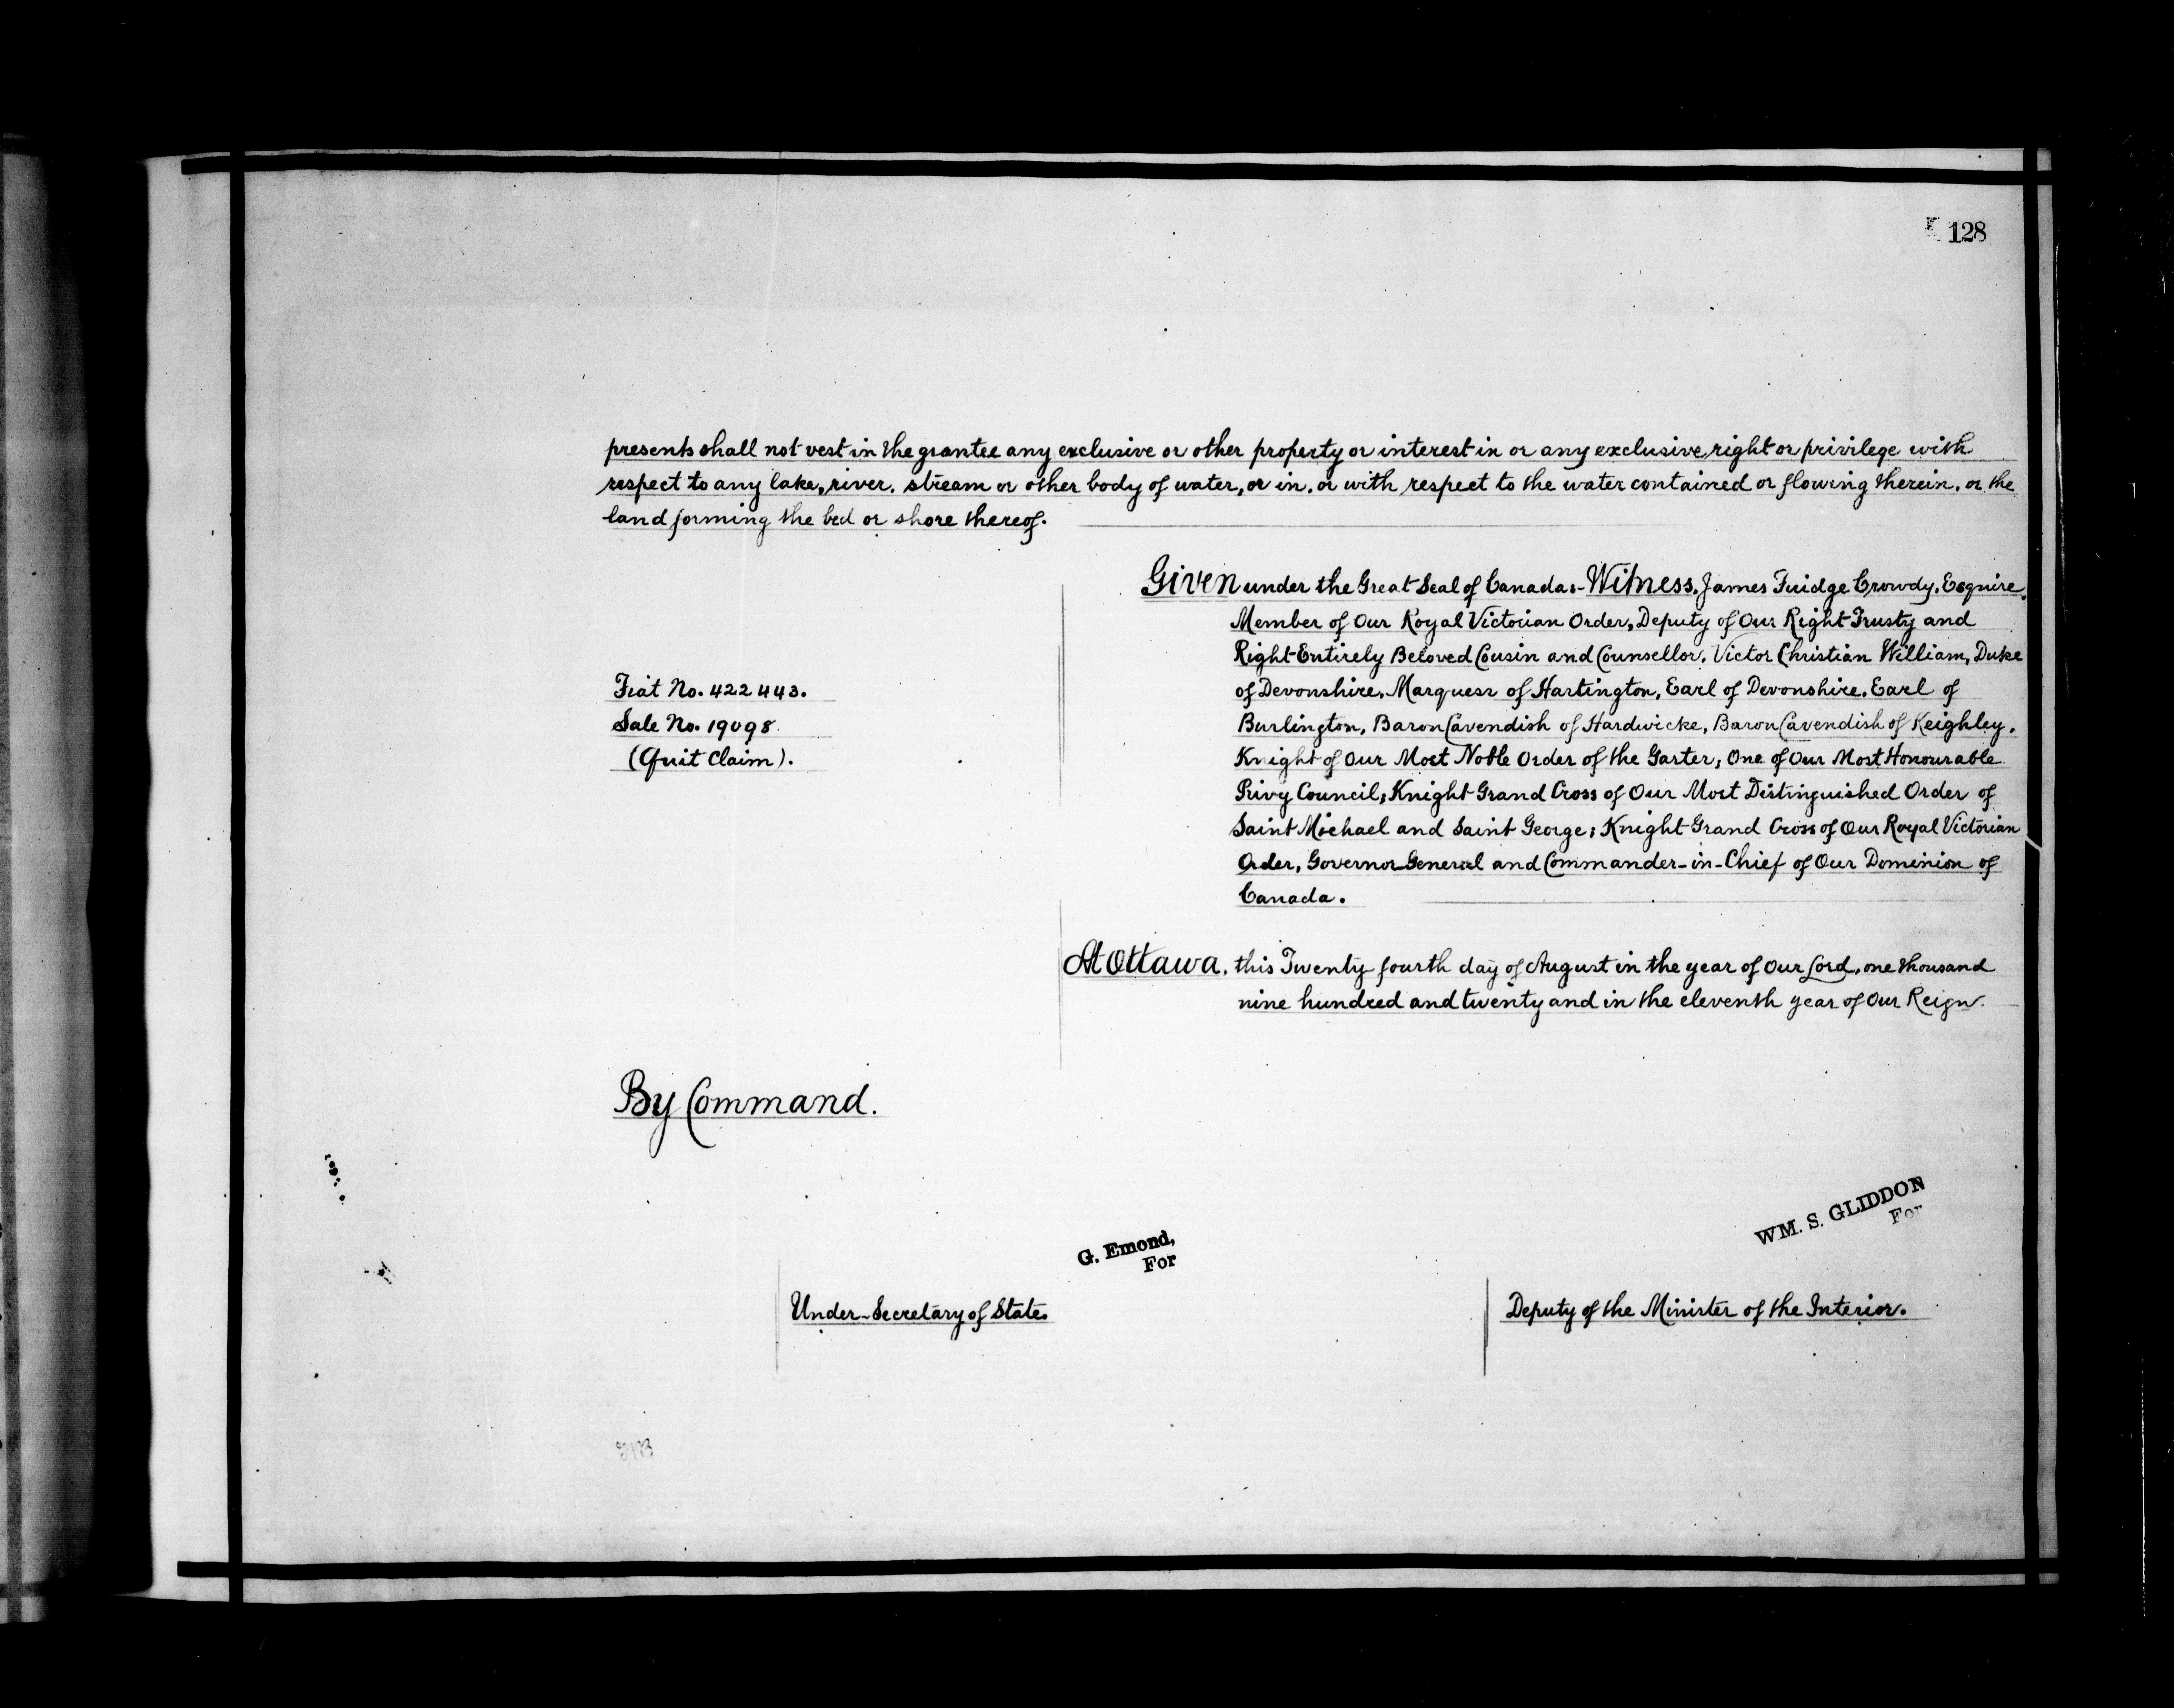 128
presents shall not vest in the grantee any exclusive or other property or interest in or any exclusive right or privilege with
respect to any lake, river, stream or other body of water, or in, or with respect to the water contained or flowing therein, or the
land forming the bed or shore thereof.
Given under the Great Seal of Canada:- Witness, James Fuidge Crowdy, Esquire,
Member of Our Royal Victorian Order, Deputy of Our Right Trusty and
Right Entirely Beloved Cousin and Counsellor, Victor Christian William, Duke
of Devonshire, Marquess of Hartington, Earl of Devonshire, Earl of
Burlington, Baron Cavendish of Hardwicke, Baron Cavendish of Keighley,
Knight of Our Most Noble Order of the Garter; One of Our Most Honourable
Privy Council; Knight Grand Cross of Our Most Distinguished Order of
Saint Michael and Saint George; Knight Grand Cross of Our Royal Victorian
Order, Governor General and Commander-in-Chief of Our Dominion of
Canada.
Fiat No. 422443.
Sale No. 19098.
(Quit Claim).
At Ottawa, this Twenty fourth day of August in the year of Our Lord, one thousand
nine hundred and twenty and in the eleventh year of Our Reign.
By Command.
WM. S. GLIDDON
For
G. Emond,
For
Under-Secretary of State.
Deputy of the Minister of the Interior.